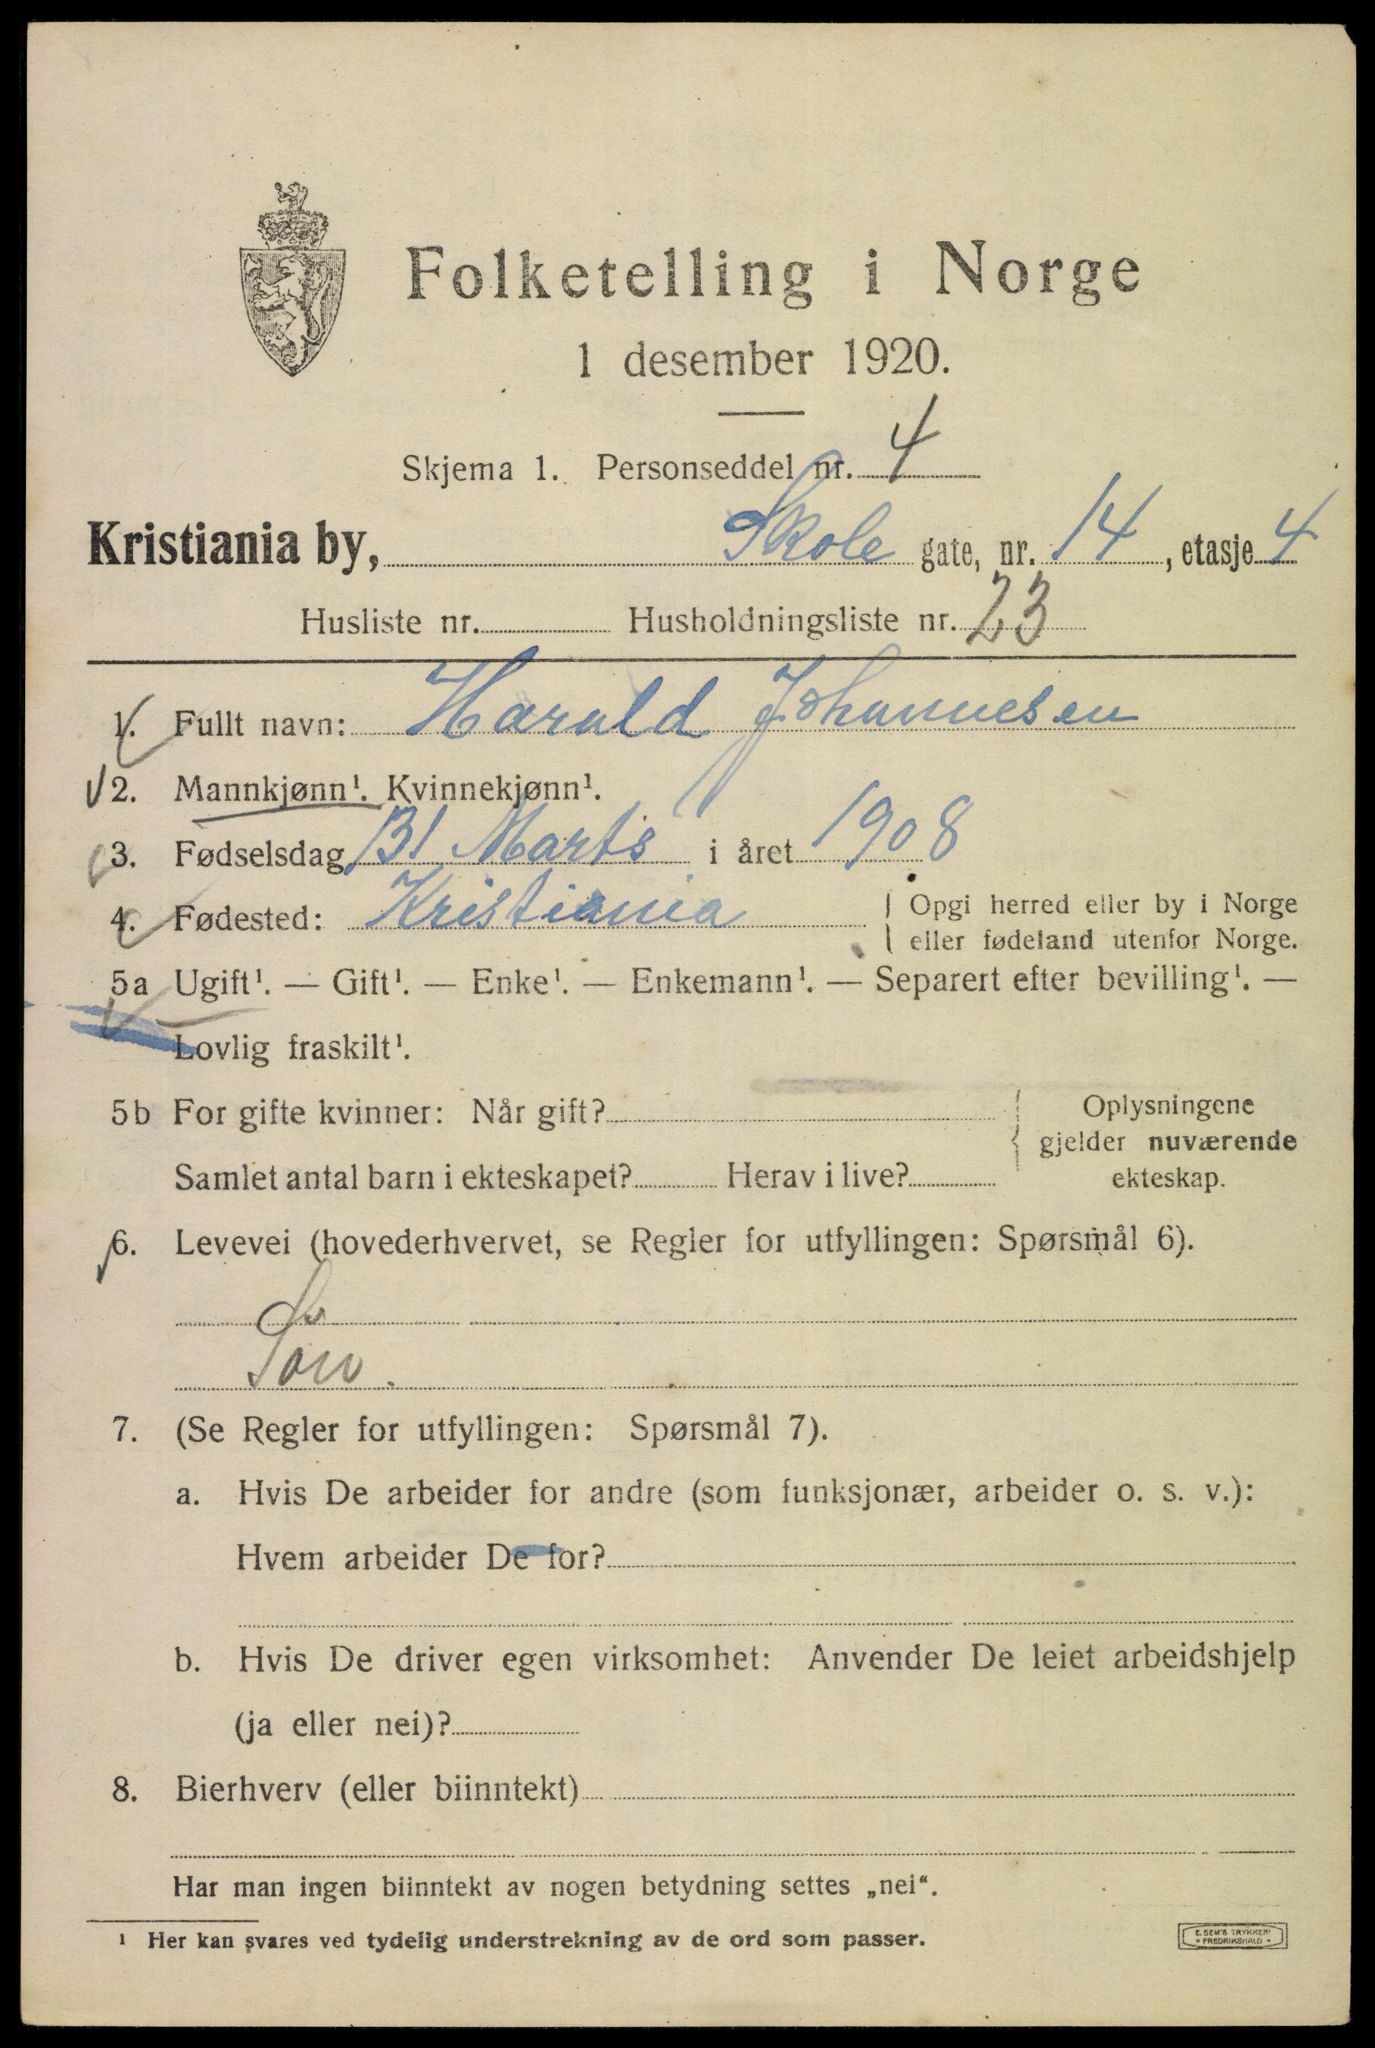 Folketelling i Norge
1 desember 1920.
Skjema 1. Personseddel nr. 4
Kristiania by, Skole gate, nr. 14, etasje 4
Husliste nr. Husholdningsliste nr. 23
1. Fullt navn: Harald Johannesen
2. Mannkjønn¹. Kvinnekjønn¹.
3. Fødselsdag 31 Marts i året 1908
4. Fødested: Kristiania { Opgi herred eller by i Norge
eller fødeland utenfor Norge.
5a Ugift¹. — Gift¹. — Enke¹. — Enkemann¹. — Separert efter bevilling¹. —
Lovlig fraskilt¹.
5b For gifte kvinner: Når gift?
Samlet antal barn i ekteskapet? Herav i live?
{ Oplysningene
gjelder nuværende
ekteskap.
6. Levevei (hovederhvervet, se Regler for utfyllingen: Spørsmål 6).
7. (Se Regler for utfyllingen: Spørsmål 7).
a. Hvis De arbeider for andre (som funksjonær, arbeider o. s. v.):
Hvem arbeider De for?
b. Hvis De driver egen virksomhet: Anvender De leiet arbeidshjelp
(ja eller nei)?
8. Bierhverv (eller biinntekt)
Har man ingen biinntekt av nogen betydning settes „nei“.
¹ Her kan svares ved tydelig understrekning av de ord som passer.
E. SEM'S TRYKKERI
• FREDRIKSHALD •